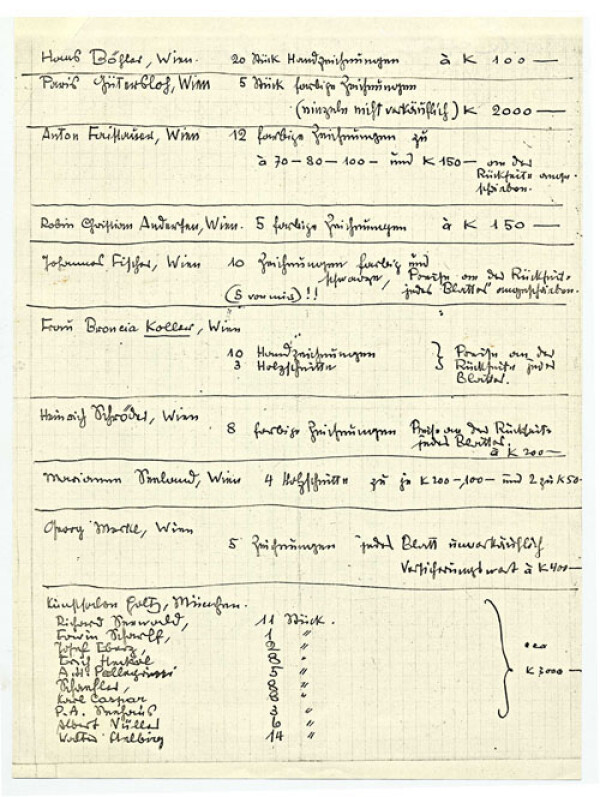 Hans Böhler, Wien. 20 Stück Handzeichnungen à K 100 —
Paris Gütersloh, Wien 5 Stück farbige Zeichnungen
(einzeln nicht verkäuflich) K 2000 —
Anton Faistauer, Wien 12 farbige Zeichnungen zu
à 70 – 80 – 100 – und K 150 — an der
Rückseite ange-
schrieben.
Robin Christian Andersen, Wien. 5 farbige Zeichnungen à K 150 —
Johannes Fischer, Wien 10 Zeichnungen farbig und
schwarze, Preise an der Rückseite
(5 von mir)!! jedes Blattes angeschrieben.
Frau Broncia Koller, Wien
10 Handzeichnungen } Preise an der
3 Holzschnitte Rückseite jedes
Blattes.
Heinrich Schröder, Wien
8 farbige Zeichnungen Preise an der Rückseite
jedes Blattes.
à K 200 —
Marianne Seeland, Wien 4 Holzschnitte zu je K 200 –, 100 – und 2 zu K 50
Georg Merkl, Wien
5 Zeichnungen jedes Blatt unverkäuflich
Versicherungswert à K 400 —
Kunstsalon Goltz, München.
Richard Seewald, 11 Stück.
Edwin Scharff, 1 "
Josef Eberz, 2 "
Erich Heckel 8 "
A. H. Pellegrini 5 "
Schaefler, 8 "
Karl Caspar 8 "
P. A. Seehaus 3 "
Albert Müller 6 "
14 "
K 7000 —